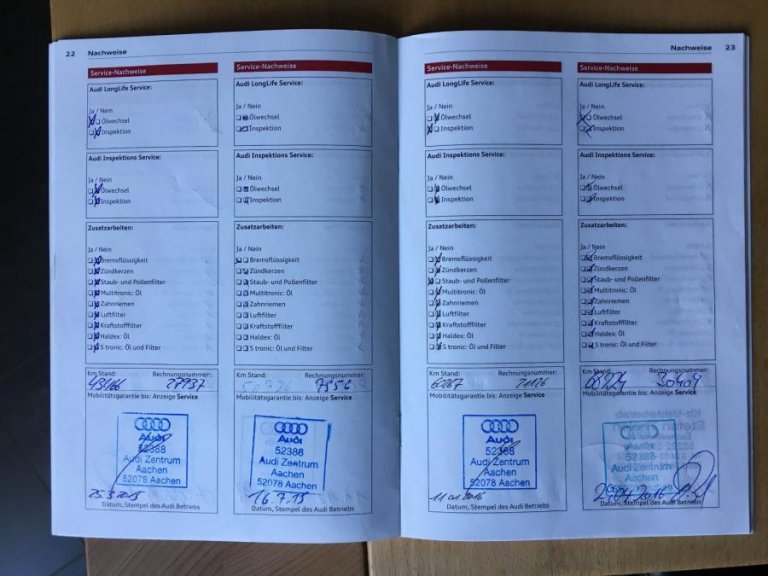 22 Nachweise
Service-Nachweise
Audi LongLife Service:
Ja / Nein
Ölwechsel
Inspektion
Audi Inspektions Service:
Ja / Nein
Ölwechsel
Inspektion
Zusatzarbeiten:
Ja / Nein
Bremsflüssigkeit
Zündkerzen
Staub- und Pollenfilter
Multitronic: Öl
Zahnriemen
Luftfilter
Kraftstofffilter
Haldex: Öl
S tronic: Öl und Filter
Km Stand: Rechnungsnummer:
27937
Mobilitätsgarantie bis: Anzeige Service
Audi
52388
Audi Zentrum
Aachen
52078 Aachen
Datum, Stempel des Audi Betriebs
Service-Nachweise
Audi LongLife Service:
Ja / Nein
Ölwechsel
Inspektion
Audi Inspektions Service:
Ja / Nein
Ölwechsel
Inspektion
Zusatzarbeiten:
Ja / Nein
Bremsflüssigkeit
Zündkerzen
Staub- und Pollenfilter
Multitronic: Öl
Zahnriemen
Luftfilter
Kraftstofffilter
Haldex: Öl
S tronic: Öl und Filter
Km Stand: Rechnungsnummer:
Mobilitätsgarantie bis: Anzeige Service
Audi
52388
Audi Zentrum
Aachen
52078 Aachen
16.7.15
Datum, Stempel des Audi Betriebs
Nachweise 23
Service-Nachweise
Audi LongLife Service:
Ja / Nein
Ölwechsel
Inspektion
Audi Inspektions Service:
Ja / Nein
Ölwechsel
Inspektion
Zusatzarbeiten:
Ja / Nein
Bremsflüssigkeit
Zündkerzen
Staub- und Pollenfilter
Multitronic: Öl
Zahnriemen
Luftfilter
Kraftstofffilter
Haldex: Öl
S tronic: Öl und Filter
Km Stand: Rechnungsnummer:
Mobilitätsgarantie bis: Anzeige Service
Audi
52388
Audi Zentrum
Aachen
52078 Aachen
Datum, Stempel des Audi Betriebs
Service-Nachweise
Audi LongLife Service:
Ja / Nein
Ölwechsel
Inspektion
Audi Inspektions Service:
Ja / Nein
Ölwechsel
Inspektion
Zusatzarbeiten:
Ja / Nein
Bremsflüssigkeit
Zündkerzen
Staub- und Pollenfilter
Multitronic: Öl
Zahnriemen
Luftfilter
Kraftstofffilter
Haldex: Öl
S tronic: Öl und Filter
Km Stand: Rechnungsnummer:
Mobilitätsgarantie bis: Anzeige Service
Audi
52388
Audi Zentrum
Aachen
52078 Aachen
Datum, Stempel des Audi Betriebs